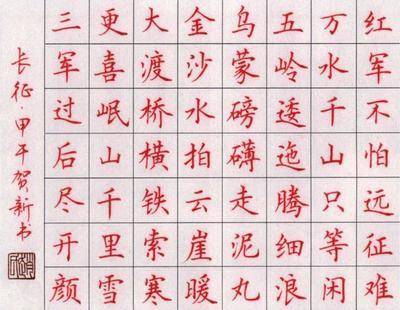 红军不怕远征难
万水千山只等闲
五岭逶迤腾细浪
乌蒙磅礴走泥丸
金沙水拍云崖暖
大渡桥横铁索寒
更喜岷山千里雪
三军过后尽开颜
长征·甲午贺新书